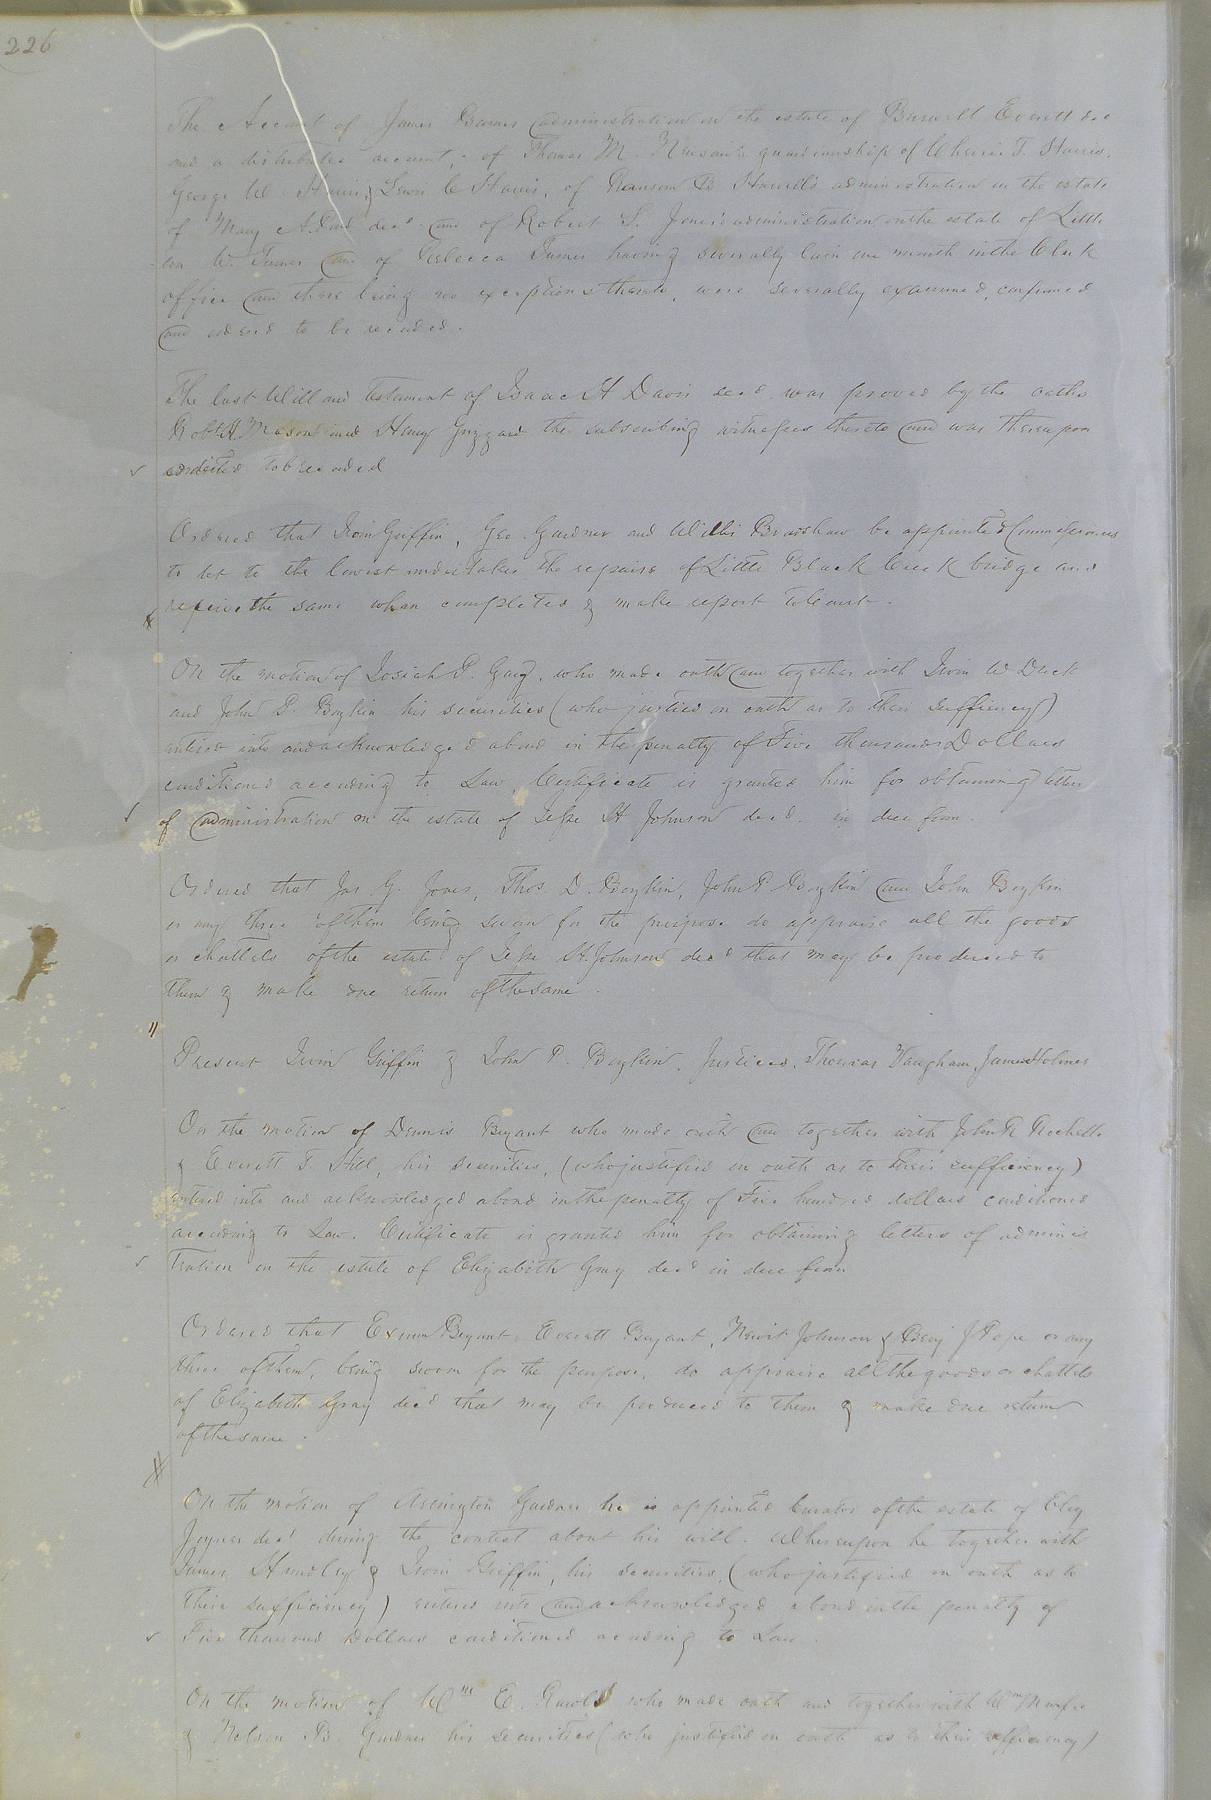 226
The Account of James Barnes administration on the estate of Burwell Everett dec
and a distributee account, of Thomas M. Newsom's guardianship of Charles T. Harris,
George W. Harris & Lewis C Harris, of Ransom B Harrell's administration on the estate
of Mary A. decd and of Robert S. Jones' administration on the estate of Little
ton W. Turner and of Rebecca Turner having severally lain one month in the Clerk
office and there being no exceptions thereto, were severally examined, confirmed
and ordered to be recorded.
The last Will and testament of Isaac H Davis decd. was proved by the oaths
Robt H. Mason and Henry Grizzard the subscribing witnesses thereto and was thereupon
ordered to be recorded
Ordered that Irvin Griffin, Geo. Gardner and Willis Bradshaw be appointed Commissioners
to let to the lowest undertaker the repairs of Little Black Creek bridge and
receive the same when completed & make report to Court.
On the motion of Josiah P. Gray, who made oath and together with Irvin W Duck
and John P. Boykin his securities (who justified on oath as to their sufficiency)
entered into and acknowledged a bond in the penalty of Five thousand Dollars
conditioned according to Law, Certificate is granted him for obtaining letters
of administration on the estate of Jesse H Johnson decd. in due form.
Ordered that Jas G. Jones, Thos D. Boykin, John P. Boykin and John Boykin
or any three of them being sworn for the purpose do appraise all the goods
or chattels of the estate of Jesse H. Johnson decd that may be produced to
them & make due return of the same.
Present Irvin Griffin & John P. Boykin, Justices, Thomas Vaughan, James Holmes
On the motion of Dennis Bryant who made oath and together with John R Rochelle
& Everett T Hill, his securities, (who justified on oath as to their sufficiency)
entered into and acknowledged a bond in the penalty of Five hundred dollars conditioned
according to Law. Certificate is granted him for obtaining letters of adminis
tration on the estate of Elizabeth Gray decd in due form
Ordered that Exum Bryant, Everett Bryant, Newit Johnson & Benj J Pope or any
three of them, being sworn for the purpose, do appraise all the goods or chattels
of Elizabeth Gray decd that may be produced to them & make due return
of the same.
On the motion of Arrington Gardner he is appointed Curator of the estate of Eley
Joyner decd during the contest about his will. Whereupon he together with
James Hundley & Irvin Griffin, his securities, (who justified on oath as to
their sufficiency) entered into and acknowledged a bond in the penalty of
Five thousand Dollars conditioned according to Law.
On the motion of Wm E. who made oath and together with Wm Murfee
& Nelson B. Gardner his securities (who justified on oath as to their sufficiency)